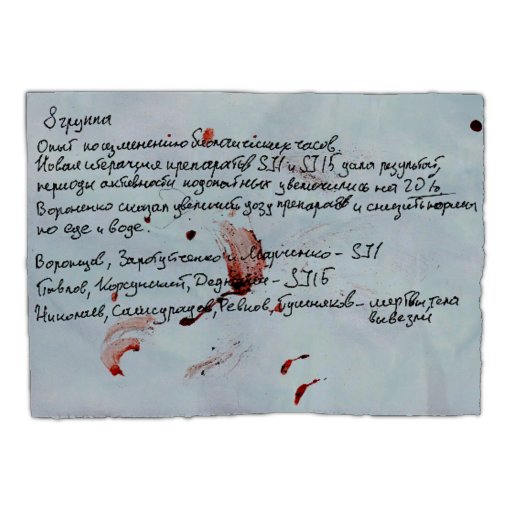 8 группа
Опыт по изменению биологических часов.
Новая итерация препаратов SJ1 и SJ15 дала результат,
периоды активности подопытных увеличились на 20%.
Вороненко сказал увеличить дозу препаратов и снизить нормы
по еде и воде.
Воронцов, и Марченко - SJ1
Павлов, Корсунский, - SJ15
Николаев, Ревнов, Пушняков - мертвы, тела
вывезли